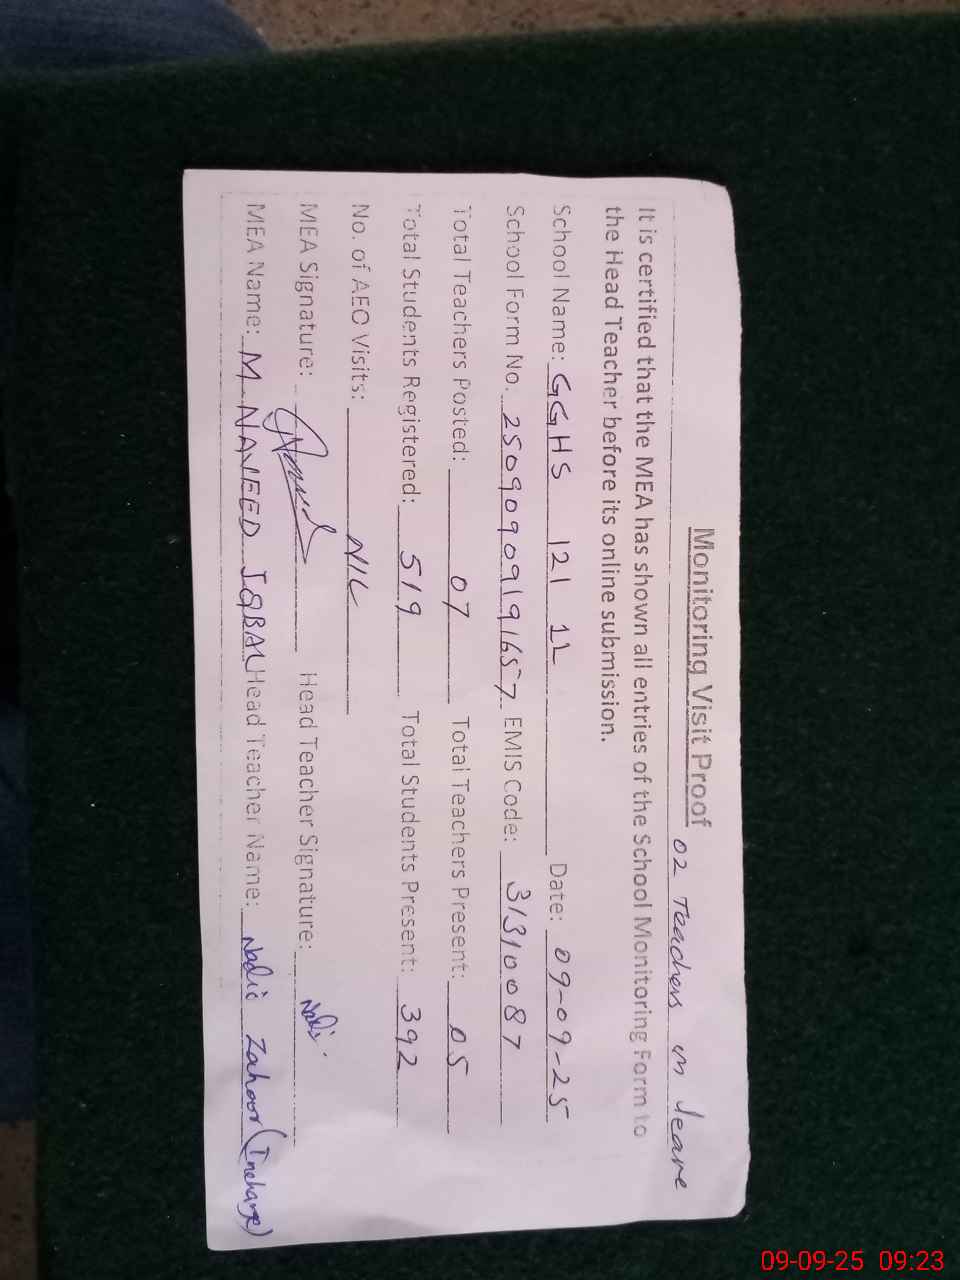 Monitoring Visit Proof
02 Teachers in leave
It is certified that the MEA has shown all entries of the School Monitoring Form to
the Head Teacher before its online submission.
School Name: GGHS 121 1L Date: 09-09-25
School Form No. 25090909191657 EMIS Code: 31310087
Total Teachers Posted: 07 Total Teachers Present: 05
Total Students Registered: 519 Total Students Present: 392
No. of AEO Visits: NIL
MEA Signature: Head Teacher Signature:
MEA Name: M. NAVEED IQBAL Head Teacher Name: Nadia Zahoor (Incharge)
09-09-25 09:23